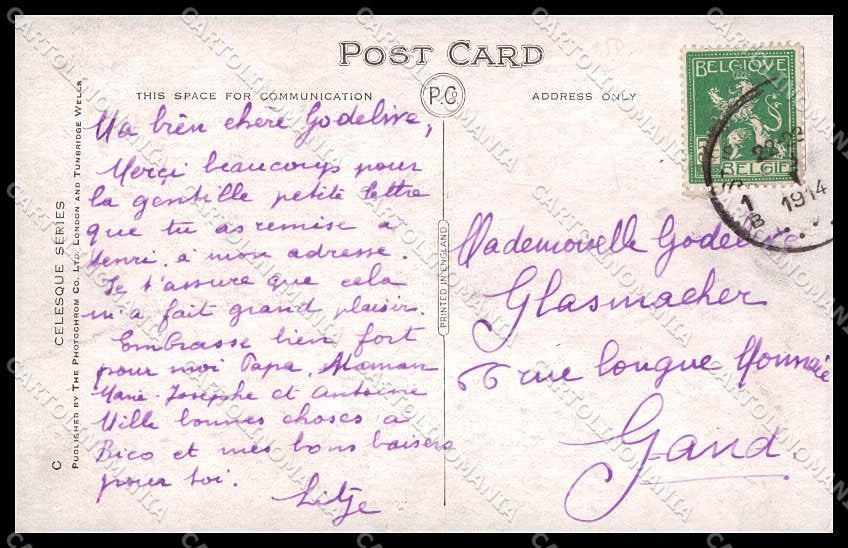 POST CARD
THIS SPACE FOR COMMUNICATION
P.C
ADDRESS ONLY
Ma bien chère Godelive,
Merçi beaucoup pour
la gentille petite lettre
que tu as remise à
Henri à mon adresse.
Je t'assure que cela
m'a fait grand plaisir.
Embrasse bien fort
pour moi Papa, Maman
Marie-Josèphe et Antoine
Mille bonnes choses à
Rico et mes bons baisers
pour toi.
Litje
BELGIQUE
BELGIË
1914
Mademoiselle Godelive
Glasmacher
rue longue Monnaie
Gand.
CELESQUE SERIES
PUBLISHED BY THE PHOTOCHROM CO. LTD. LONDON AND TUNBRIDGE WELLS.
C
PRINTED IN ENGLAND
CARTOLINOMANIA